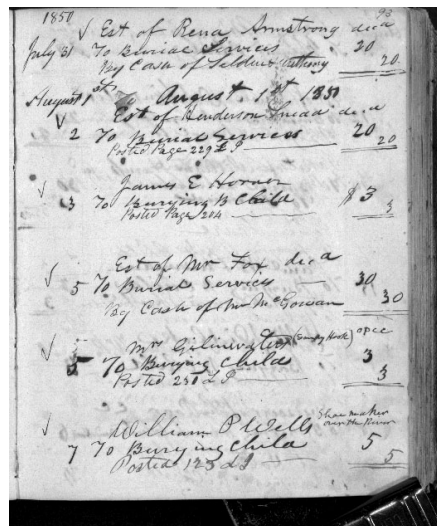 1850 93
Est of Rena Armstrong decd
July 31 To Burial Services 20
By Cash of Anthony 20
August 1st To August 1st 1850
Est of Henderson Snead decd
2 To Burial Services 20
Posted Page 229 L 20
James E Horner
3 To Burying B Child $3
Posted Page 204 3
Est of Mr Fox decd
5 To Burial Services 30
By Cash of Mr McGowan 30
Mrs opee
5 To Burying Child 3
Posted 251 L 3
William P Wells Shoe maker
over the River
7 To Burying Child 5
Posted 123 L 5